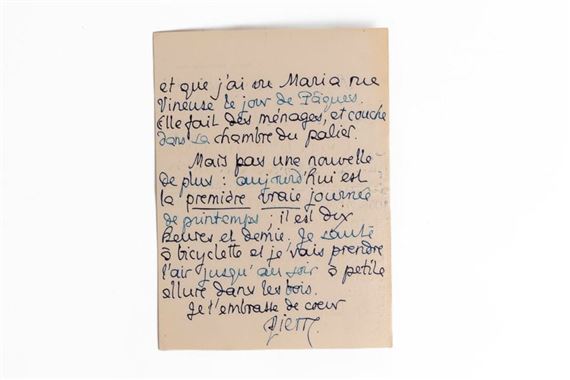 et que j'ai vu Maria rue
Vineuse le jour de Pâques.
Elle fait des ménages, et couche
dans sa chambre du palier.
Mais pas une nouvelle
de plus : aujourd'hui est
la première vraie journée
de printemps ; il est dix
heures et demie. Je saute
à bicyclette et je vais prendre
l'air jusqu'au soir à petite
allure dans les bois.
Je t'embrasse de cœur